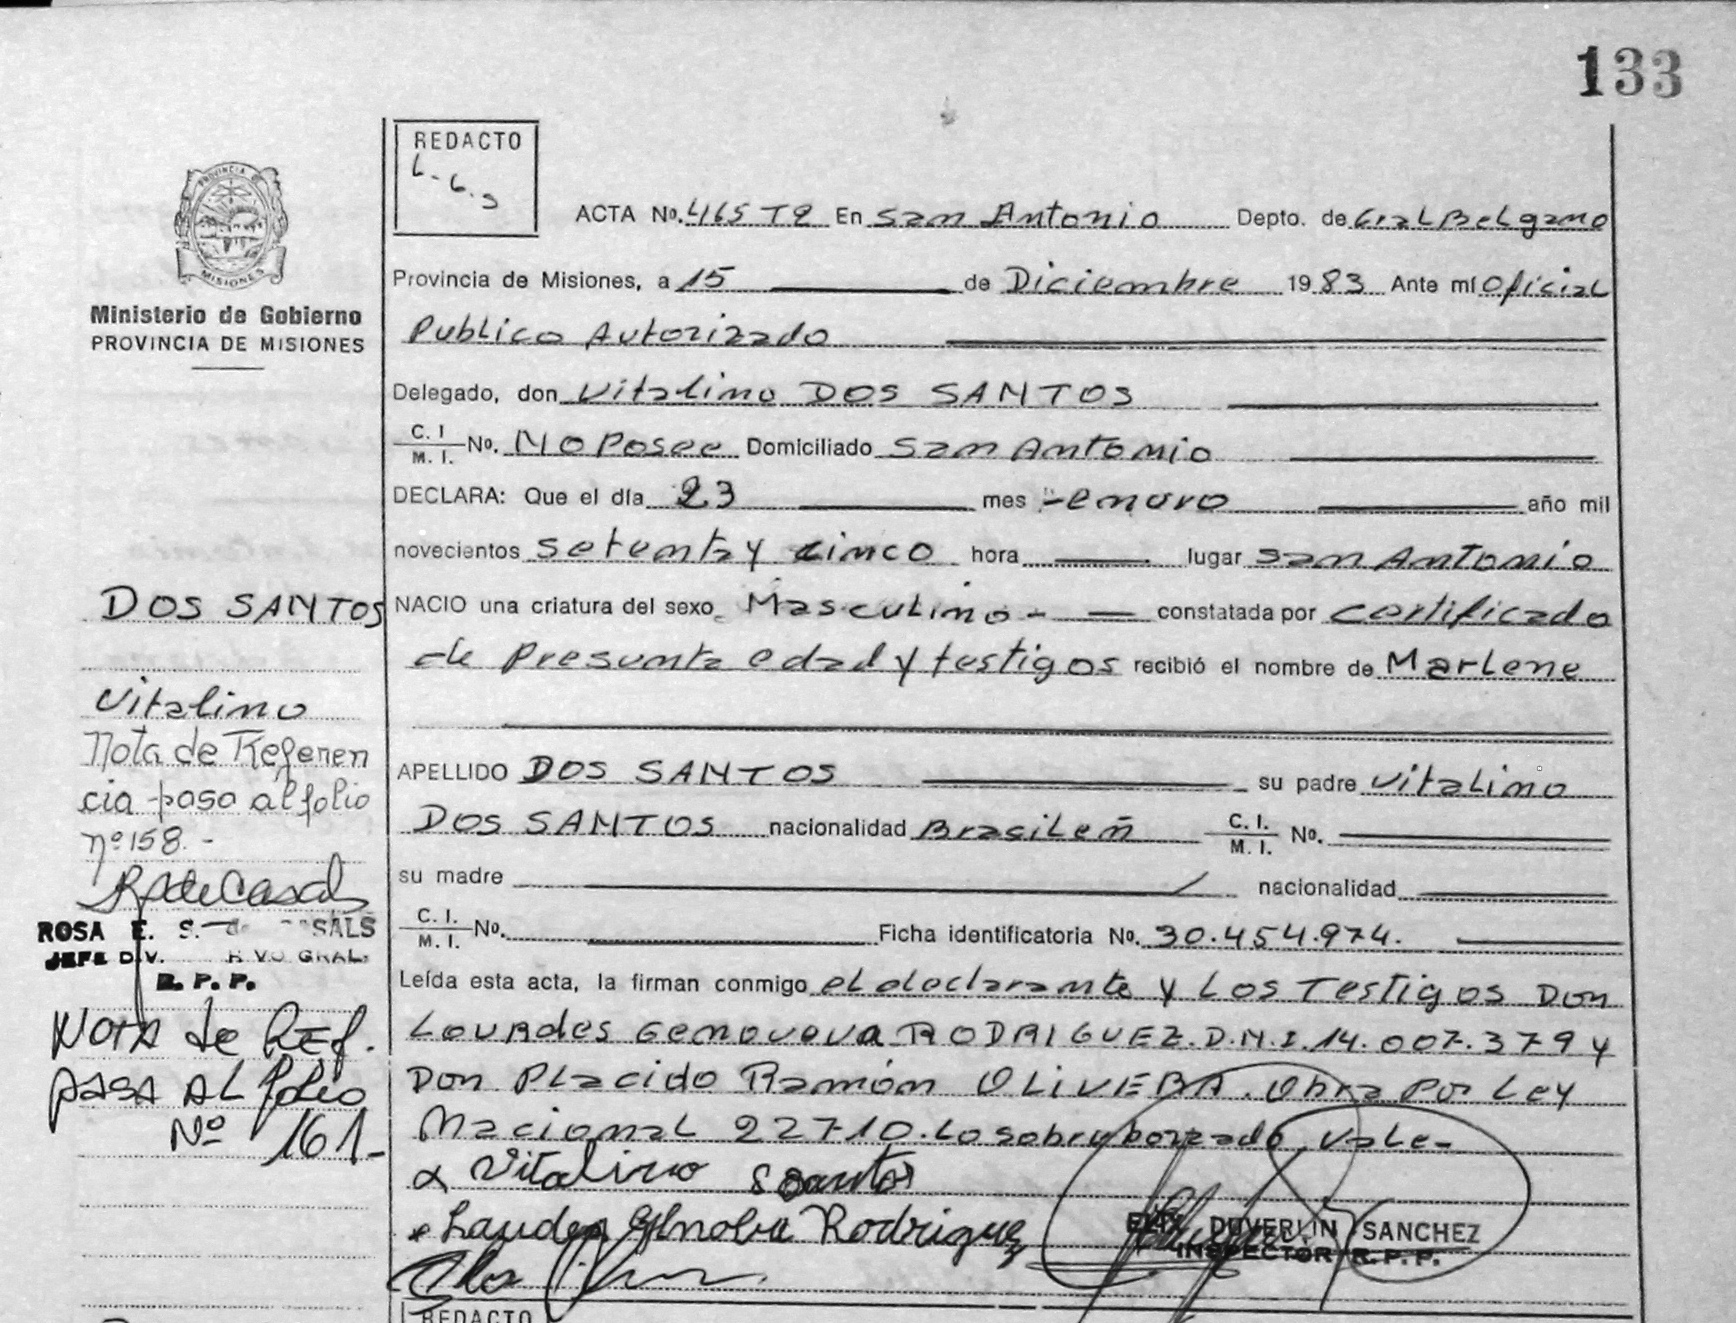 133
REDACTO
L-6.9
ACTA No. 465 T2 En San Antonio Depto. de Gral Belgrano
Provincia de Misiones, a 15 de Diciembre 1983 Ante mí Oficial
Publico Autorizado
Delegado, don Vitalino DOS SANTOS
C. I
M. I. No. NO Posee Domiciliado San Antonio
DECLARA: Que el día 23 mes enero año mil
novecientos setenta y cinco hora lugar San Antonio
NACIO una criatura del sexo Masculino - constatada por certificado
de Presunta edad y testigos recibió el nombre de Marlene
APELLIDO DOS SANTOS su padre Vitalino
DOS SANTOS nacionalidad Brasileñ C. I.
M. I. No.
su madre nacionalidad
C. I.
M. I. No. Ficha identificatoria No. 30.454.974.
Leída esta acta, la firman conmigo el declarante y Los Testigos Don
Lourdes Genoveva RODRIGUEZ. D.N.I. 14.007.379 y
Don Placido Ramón OLIVERA. Obra Por Ley
Nacional 22710. Lo sobreborrado, Vale-
Vitalino Soantos
Genobe Rodriguez
FELIX DUVERLIN SANCHEZ
INSPECTOR R.P.P.
PROVINCIA DE
MISIONES
Ministerio de Gobierno
PROVINCIA DE MISIONES
DOS SANTOS
Vitalino
Nota de Referen
cia paso al folio
nº 158. -
RdeCasals
ROSA E. S. de CASALS
JEFE DIV. GRAL.
R.P.P.
NOTA de REF.
PASA AL folio
Nº 161-
REDACTO